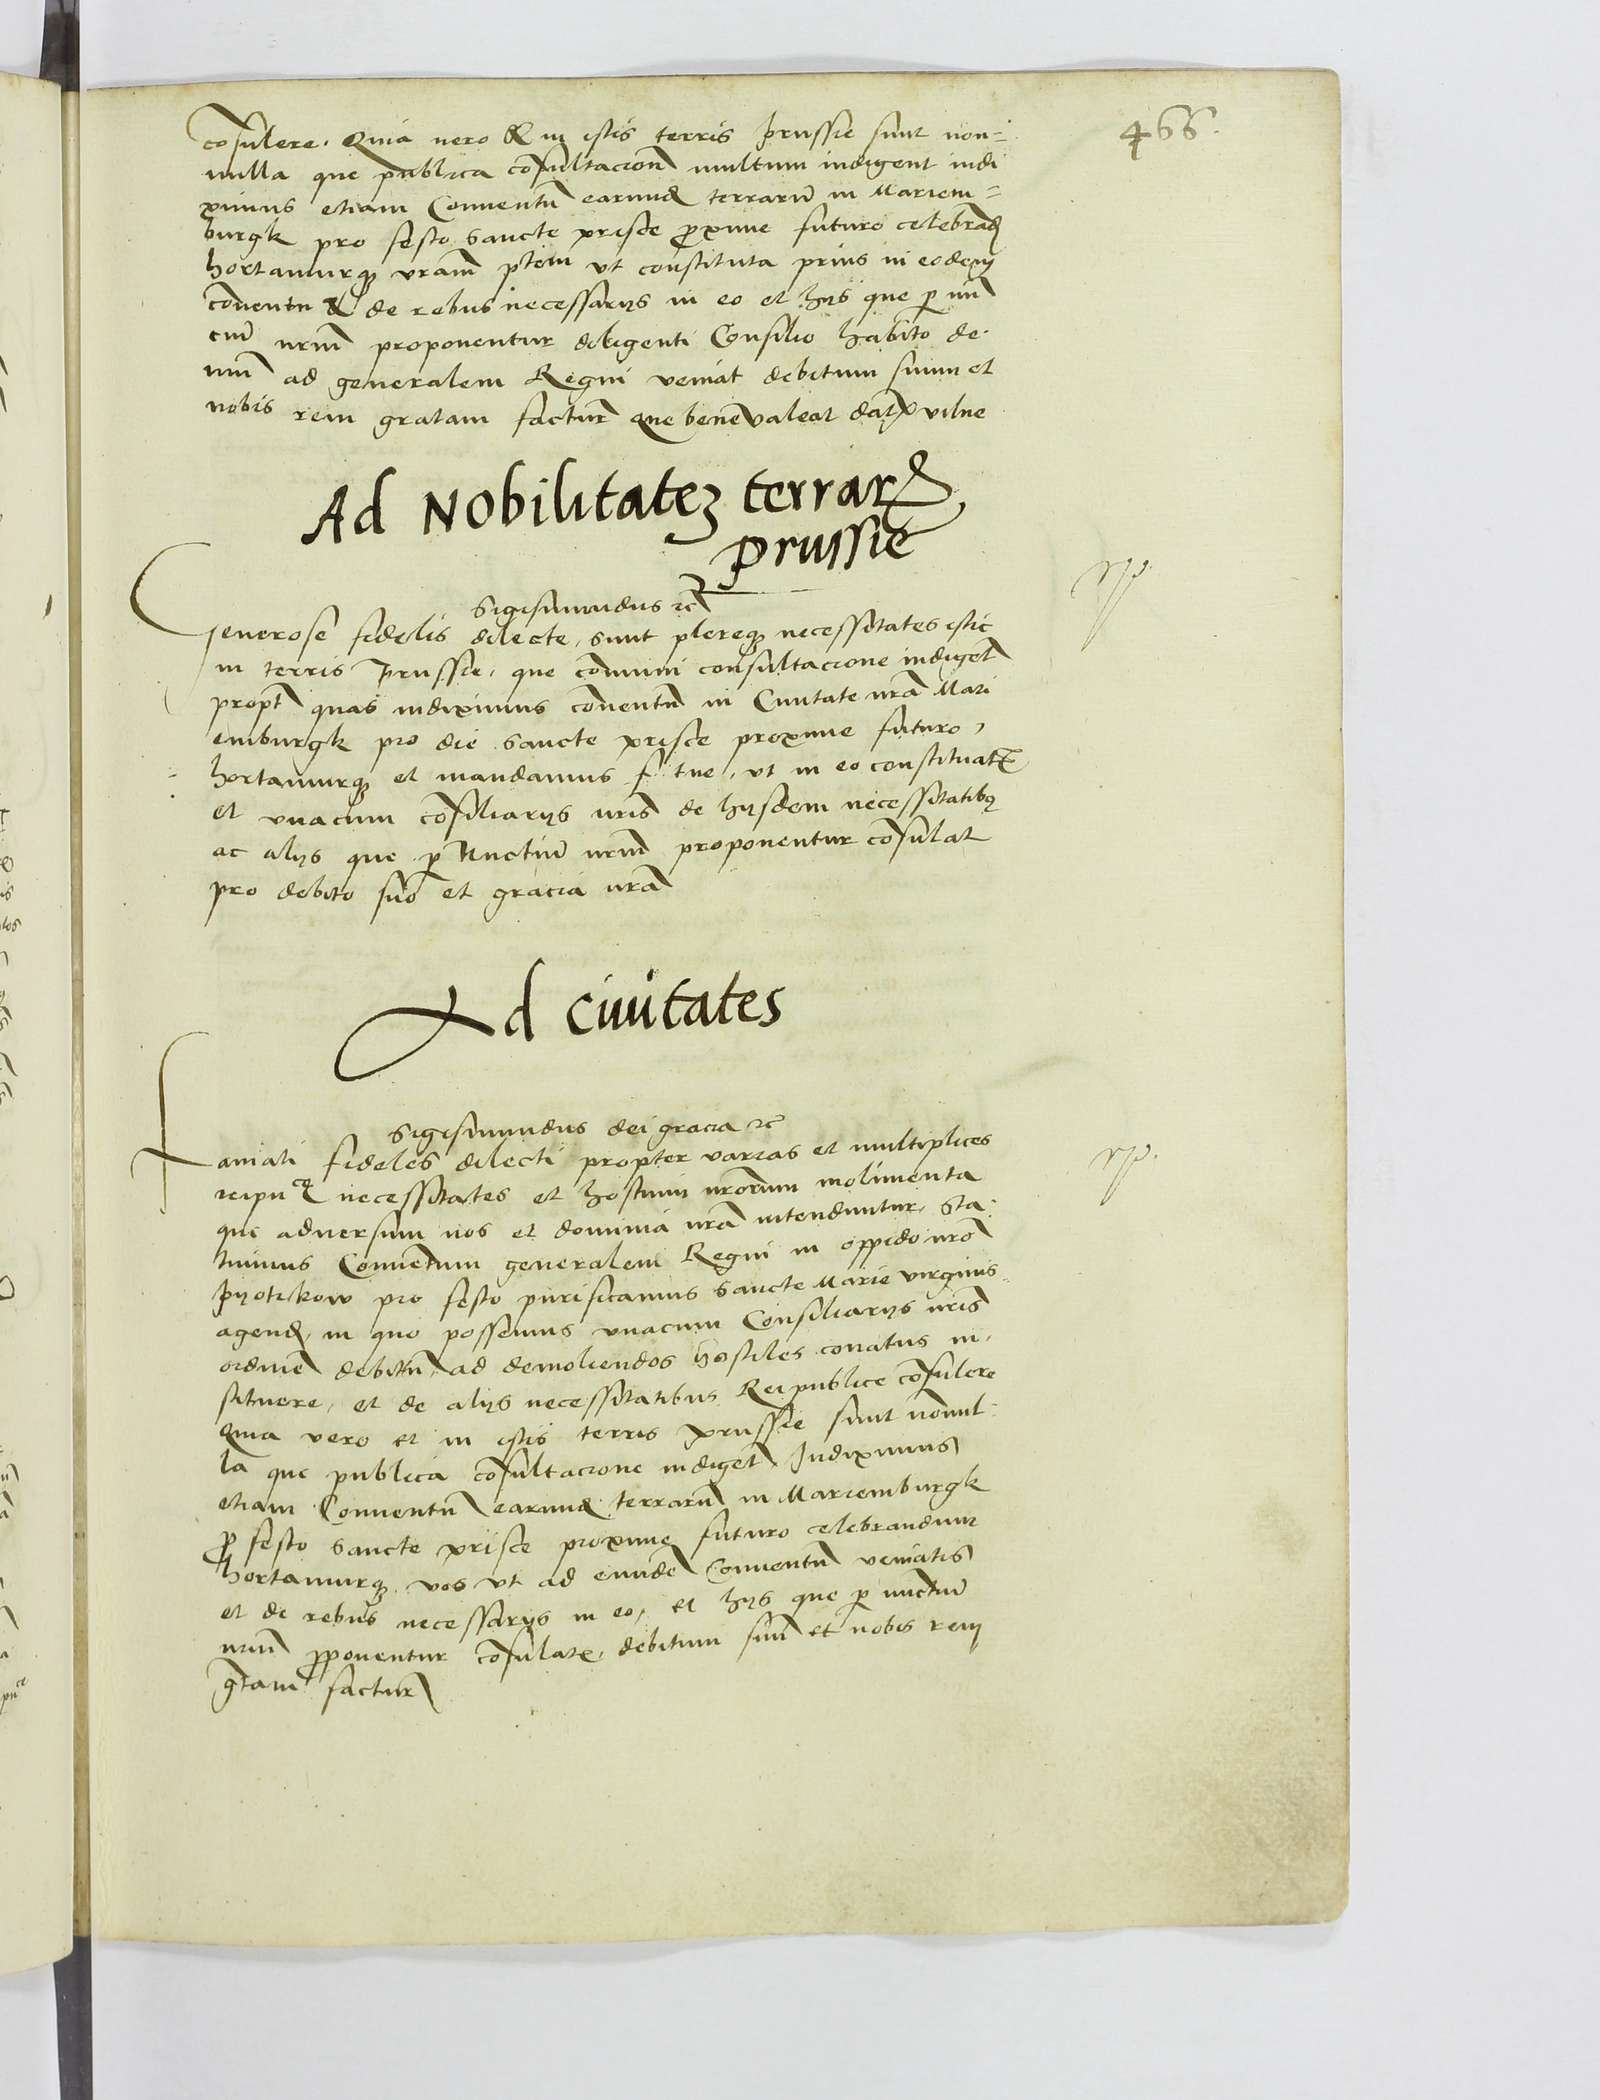 466.
consulere. Quia vero & in istis terris prussie sunt non-
nulla que publica consultacione multum indigent indi
ximus etiam Conventũ earumdẽ terrarũ in Mariem-
burgk pro festo sancte prisce proxime futuro celebrand
hortamurq vram ptem vt constituta prius in eodem
conventu & de rebus necessarijs in eo et hijs que p nũ
ciũ nrum proponentur diligenti Consilio habito de-
mũ ad generalem Regni veniat debitum suum et
nobis rem gratam facturã que bene valeat dat vilne
Ad Nobilitatez terrar
prussie
Sigismundus zc
Generose fidelis dilecte, sunt plereq necessitates istic
in terris prussie, que comuni consultacione indigent
propt quas indiximus conventũ in Civitate nra Mari
emburgk pro die sancte prisce proxime futuro,
hortamurq et mandamus f tue, vt in eo constituat
et vnacum consiliarijs nris de hijsdem necessitatibq
ac alijs que p Nuctiũ nrum proponentur consulat
pro debito suo et gracia nra
Ad civitates
Sigismundus dei gracia zc
Famati fideles dilecti propter varias et multiplices
reipuce necessitates et hostium nrorum molimenta
que adversum nos et dominia nra intenduntur, sta-
tuimus Conventum generalem Regni in oppido nro
pyotrkow pro festo purificationis sancte Marie virginis
agend, in quo possemus vnacum Consiliarijs nris
ordinẽ debitũ, ad demoliendos hostiles conatus in-
stituere, et de alijs necessitatibus Reipublice consulere
Quia vero et in istis terris prussie sunt nonnul-
la que publica consultacione indigent Indiximus
etiam Conventũ earumdẽ terrarũ in Mariemburgk
p festo sancte prisce proxime futuro celebrandum
hortamurq vos vt ad eundẽ Conventũ veniatis
et de rebus necessarijs in eo, et hijs que p nuctiũ
nrum pponentur consulatz, debitum suũ et nobis rem
gtam factur